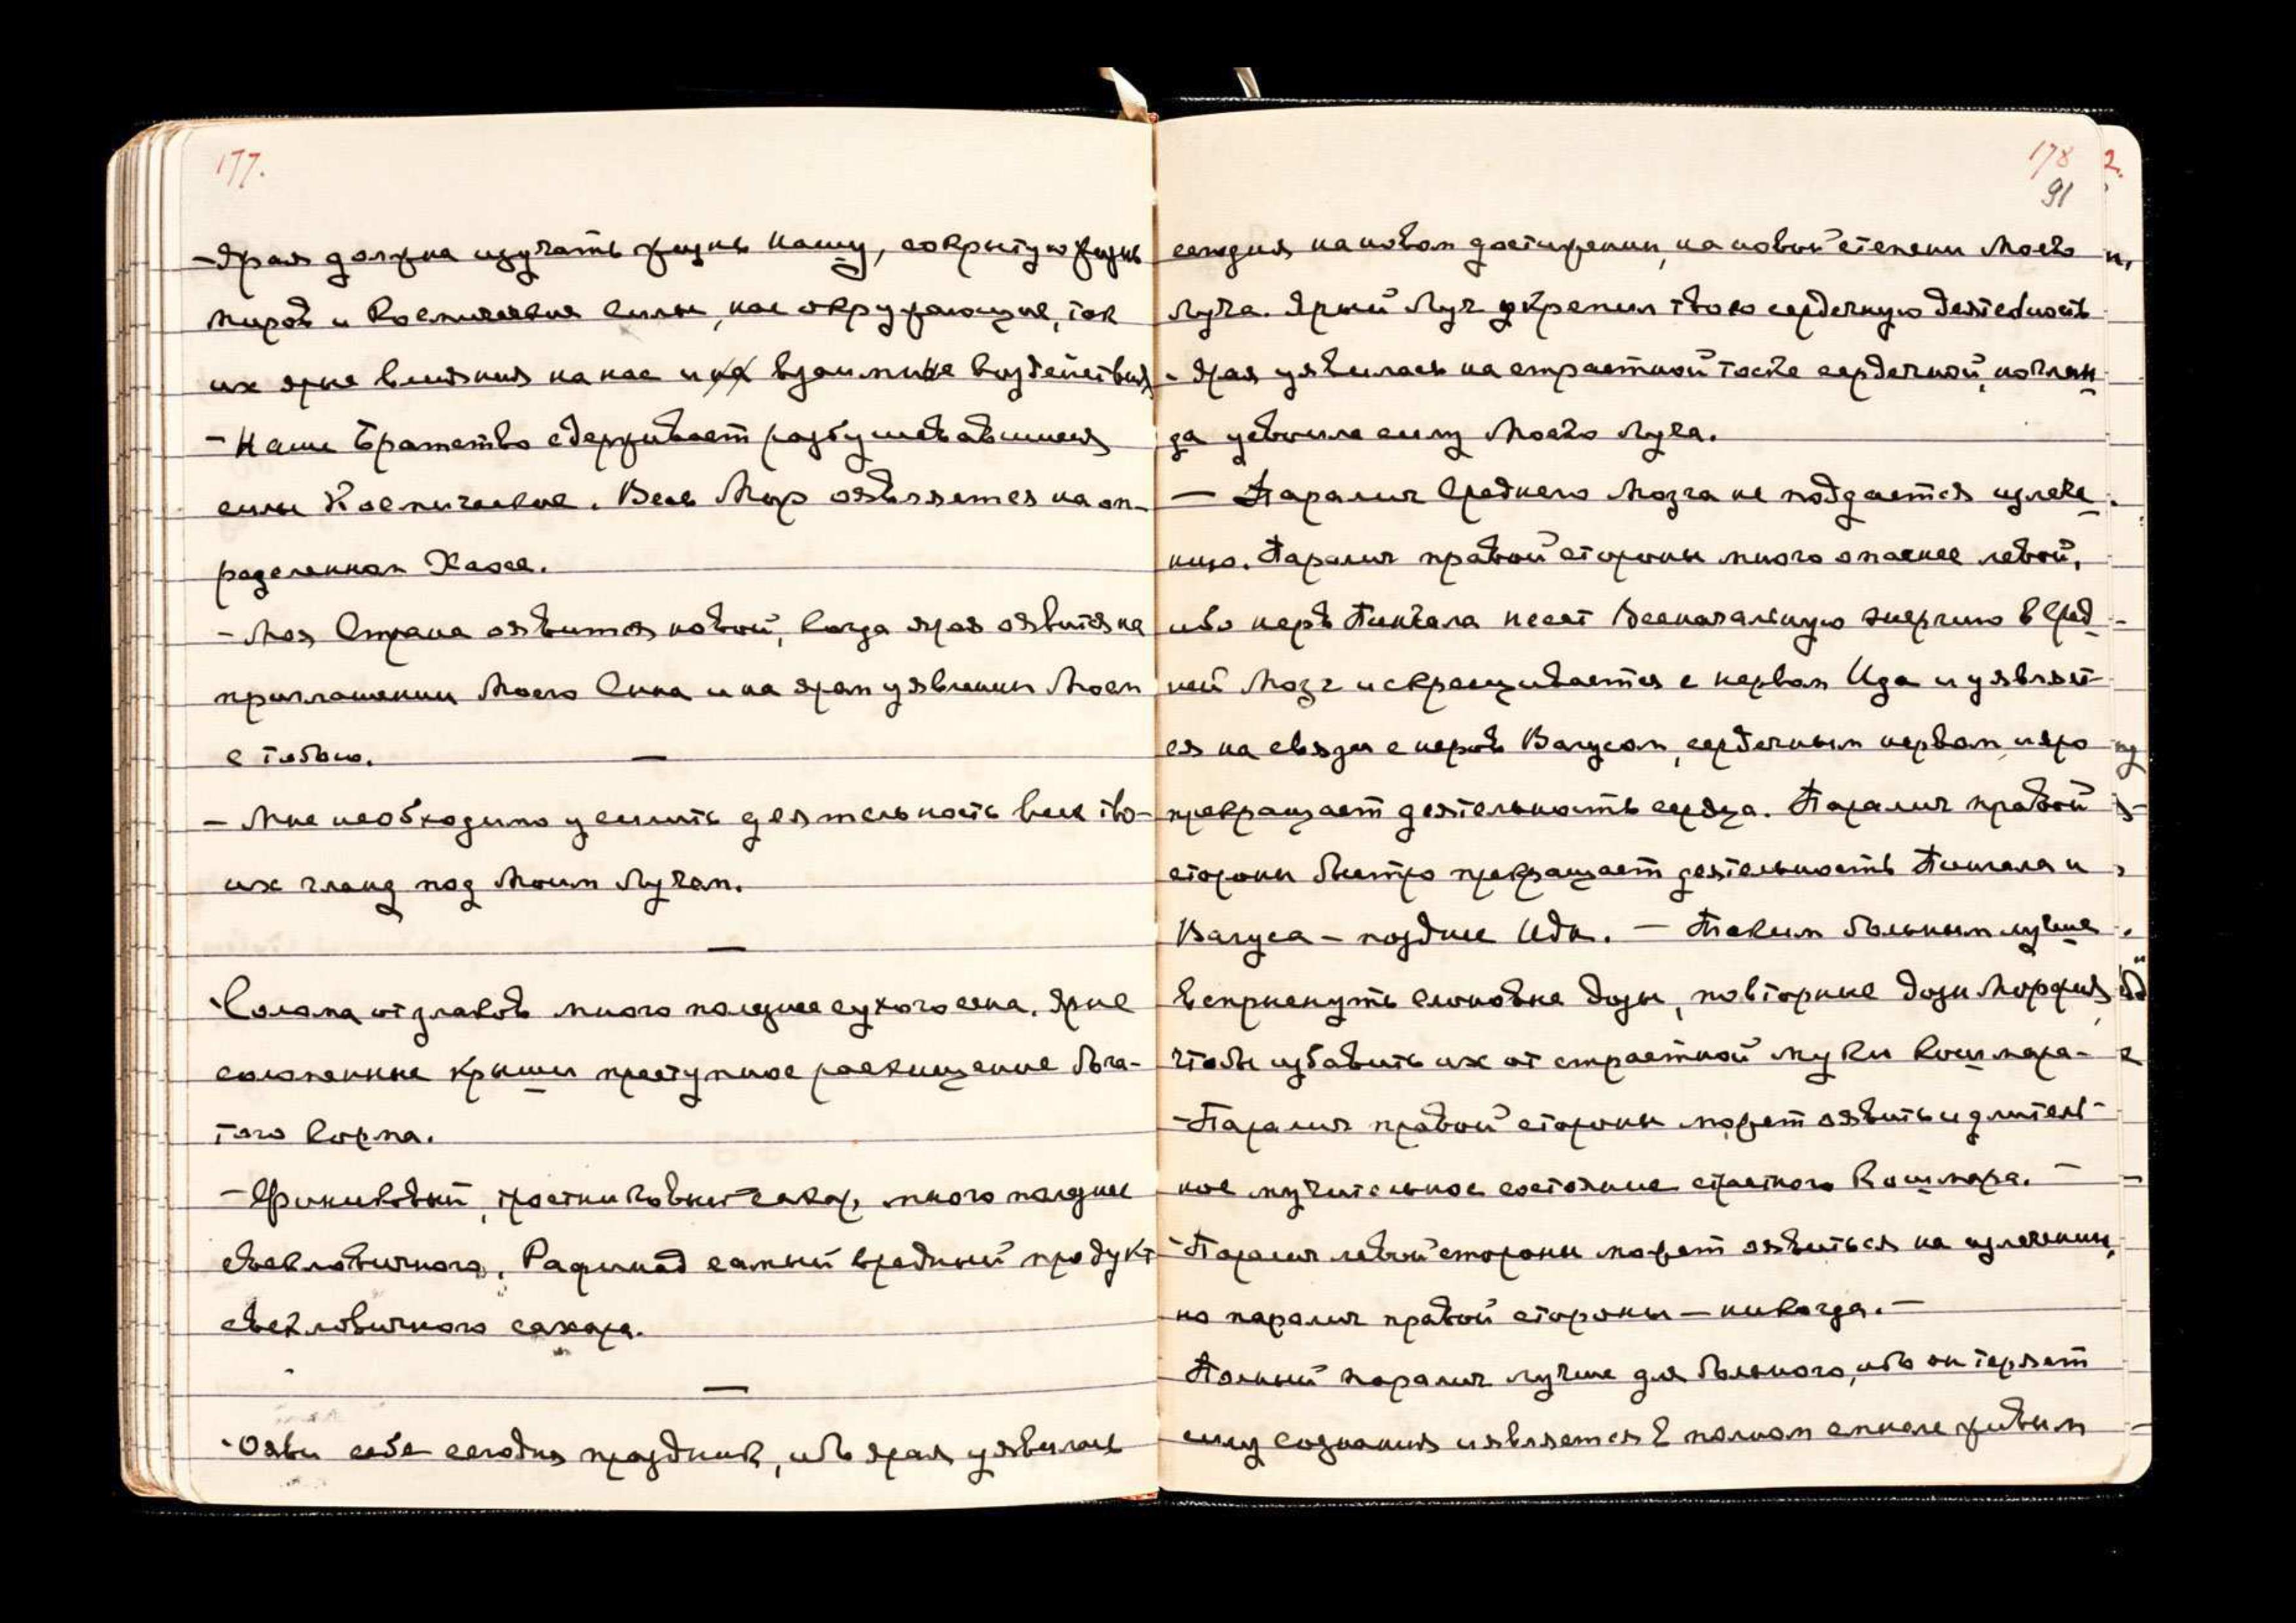 177.
- Ярая должна изучать жизнь нашу, сокрытую жизнь
миров и Космические силы, нас окружающие, так
их ярые влияния на нас и на взаимные воздействия
- Наше Братство сдерживает разбушевавшиеся
силы Космические. Весь Мир оявляется на оп-
ределенном Хаосе.
- Моя Страна оявится новой, когда ярая оявится на
приглашении Моего Сына и на яром уявлении Моем
с тобою. —
- Мне необходимо усилить деятельность всех тво-
их гланд под Моим Лучем.
—
Солома от злаков много полезнее сухого сена. Ярые
соломенные крыши преступное расхищение бога-
того корма.
- Финиковый, тростниковый сахар, много полезнее
свекловичного. Рафинад самый вредный продукт
свекловичного сахара.
—
Ояви себе сегодня праздник, ибо ярая уявилась
178
91
сегодня на новом достижении, на новой степени Моего
Луча. Ярый Луч укрепил твою сердечную деятельность
- Ярая уявилась на страстной тоске сердечной, но глан
да усвоила силу Моего Луча.
— Паралич Среднего Мозга не поддается излече
нию. Паралич правой стороны много опаснее левой,
ибо нерв Пингала несет Всеначальную энергию в Сред
ний Мозг и скрещивается с нервом Ида и уявляет
ся на связи с нервом Вагусом, сердечным нервом, и яро
прекращает деятельность сердца. Паралич правой
стороны быстро прекращает деятельность Пингала и
Вагуса – позднее Иды. — Таким больным лучше
вспрыснуть слоновые дозы, повторные дозы Морфия,
чтобы избавить их от страстной муки кошмара-
- Паралич правой стороны может оявить и длитель-
ное мучительное состояние страстного Кошмара. —
- Паралич левой стороны может оявиться на излечении,
но паралич правой стороны – никогда. —
Полный паралич лучше для больного, ибо он теряет
силу сознания и является в полном смысле живым